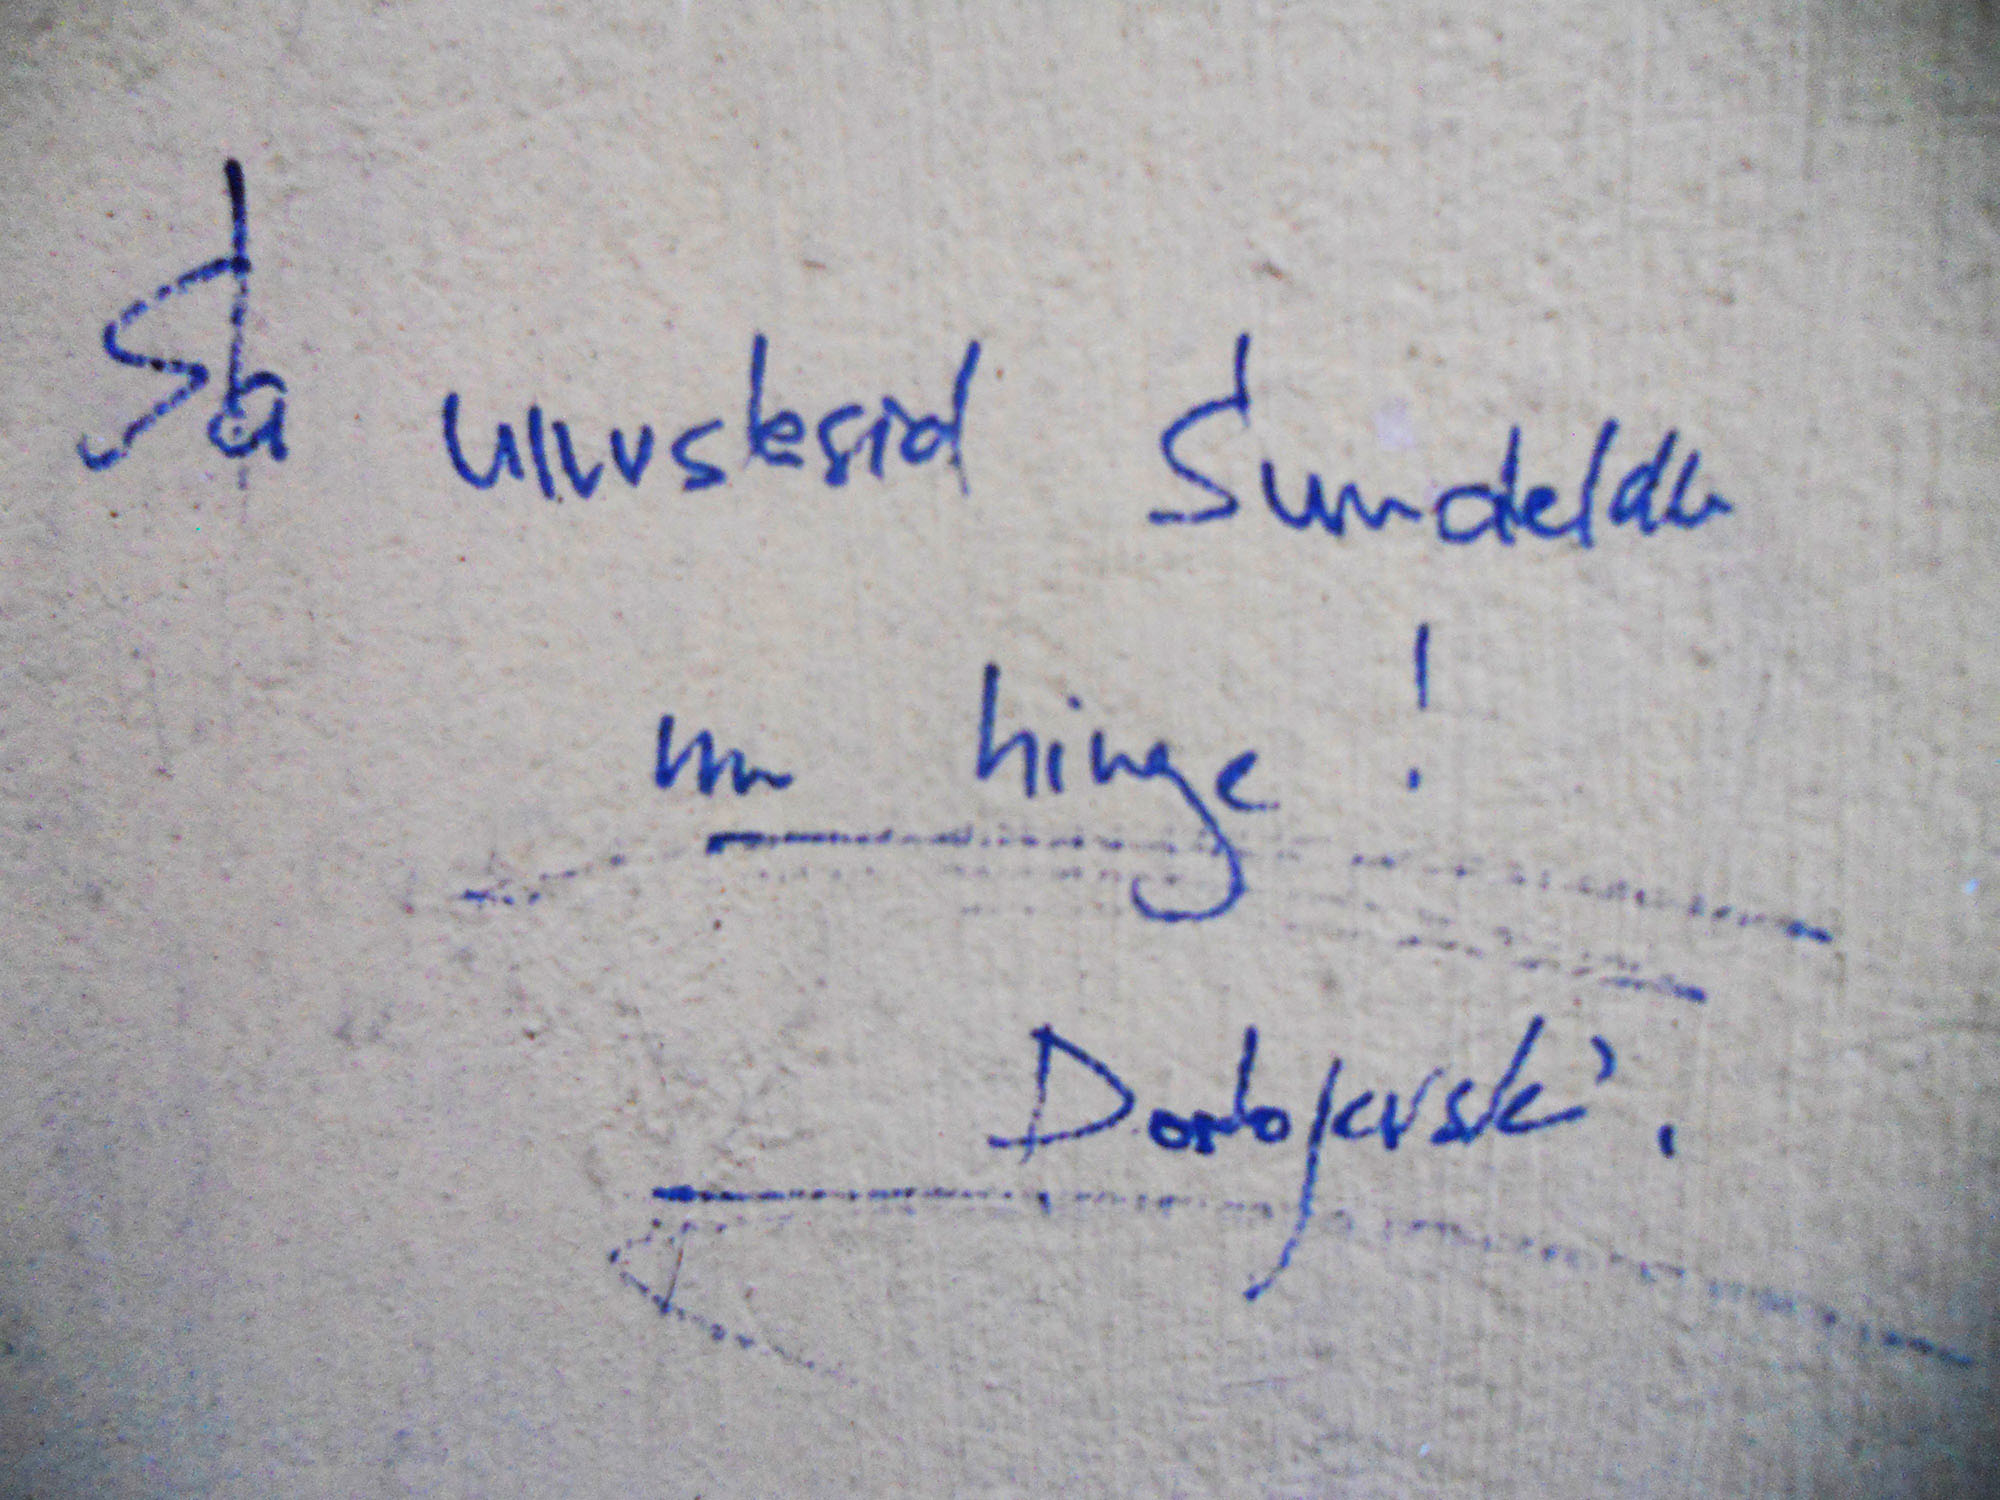 Sa unustasid Suudelda
mu hinge!
Dostojevski.